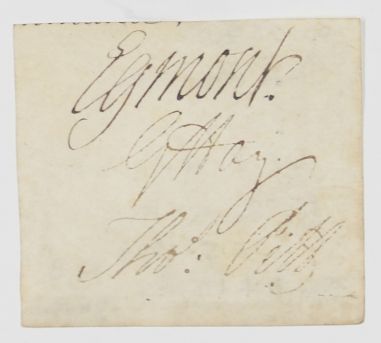 Egmont.
G Hay.
Tho.ˢ Pitt